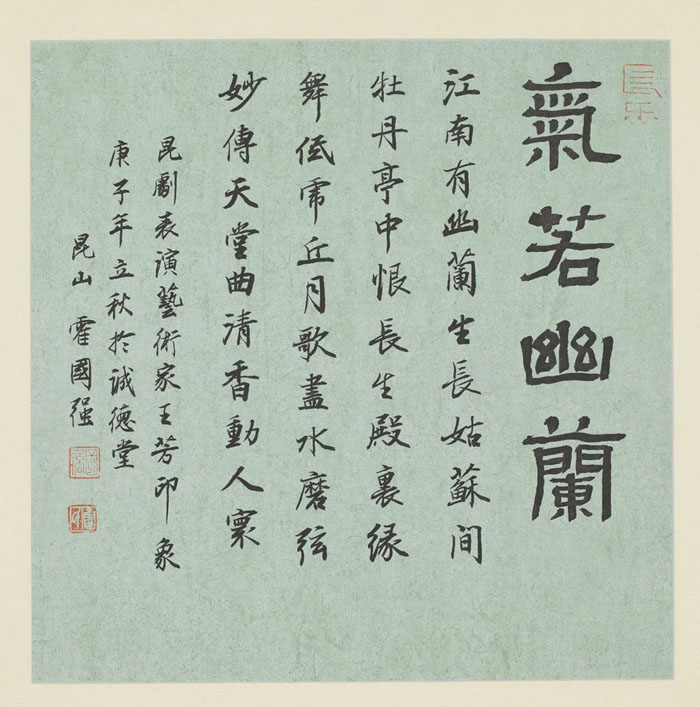 氣若幽蘭
江南有幽蘭生長姑蘇間
牡丹亭中恨長生殿裏緣
舞低虎丘月歌盡水磨弦
妙傳天堂曲清香動人寰
昆劇表演藝術家王芳印象
庚子年立秋扵誠德堂
昆山 霍國强